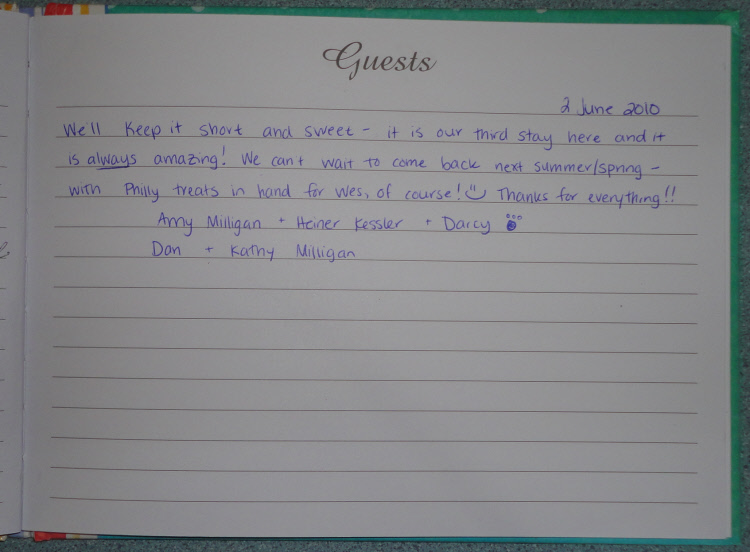 Guests
2 June 2010
We'll keep it short and sweet - it is our third stay here and it
is always amazing! We can't wait to come back next summer/spring -
with Philly treats in hand for Wes, of course! Thanks for everything!!
Amy Milligan + Heiner Kessler + Darcy
Dan + Kathy Milligan